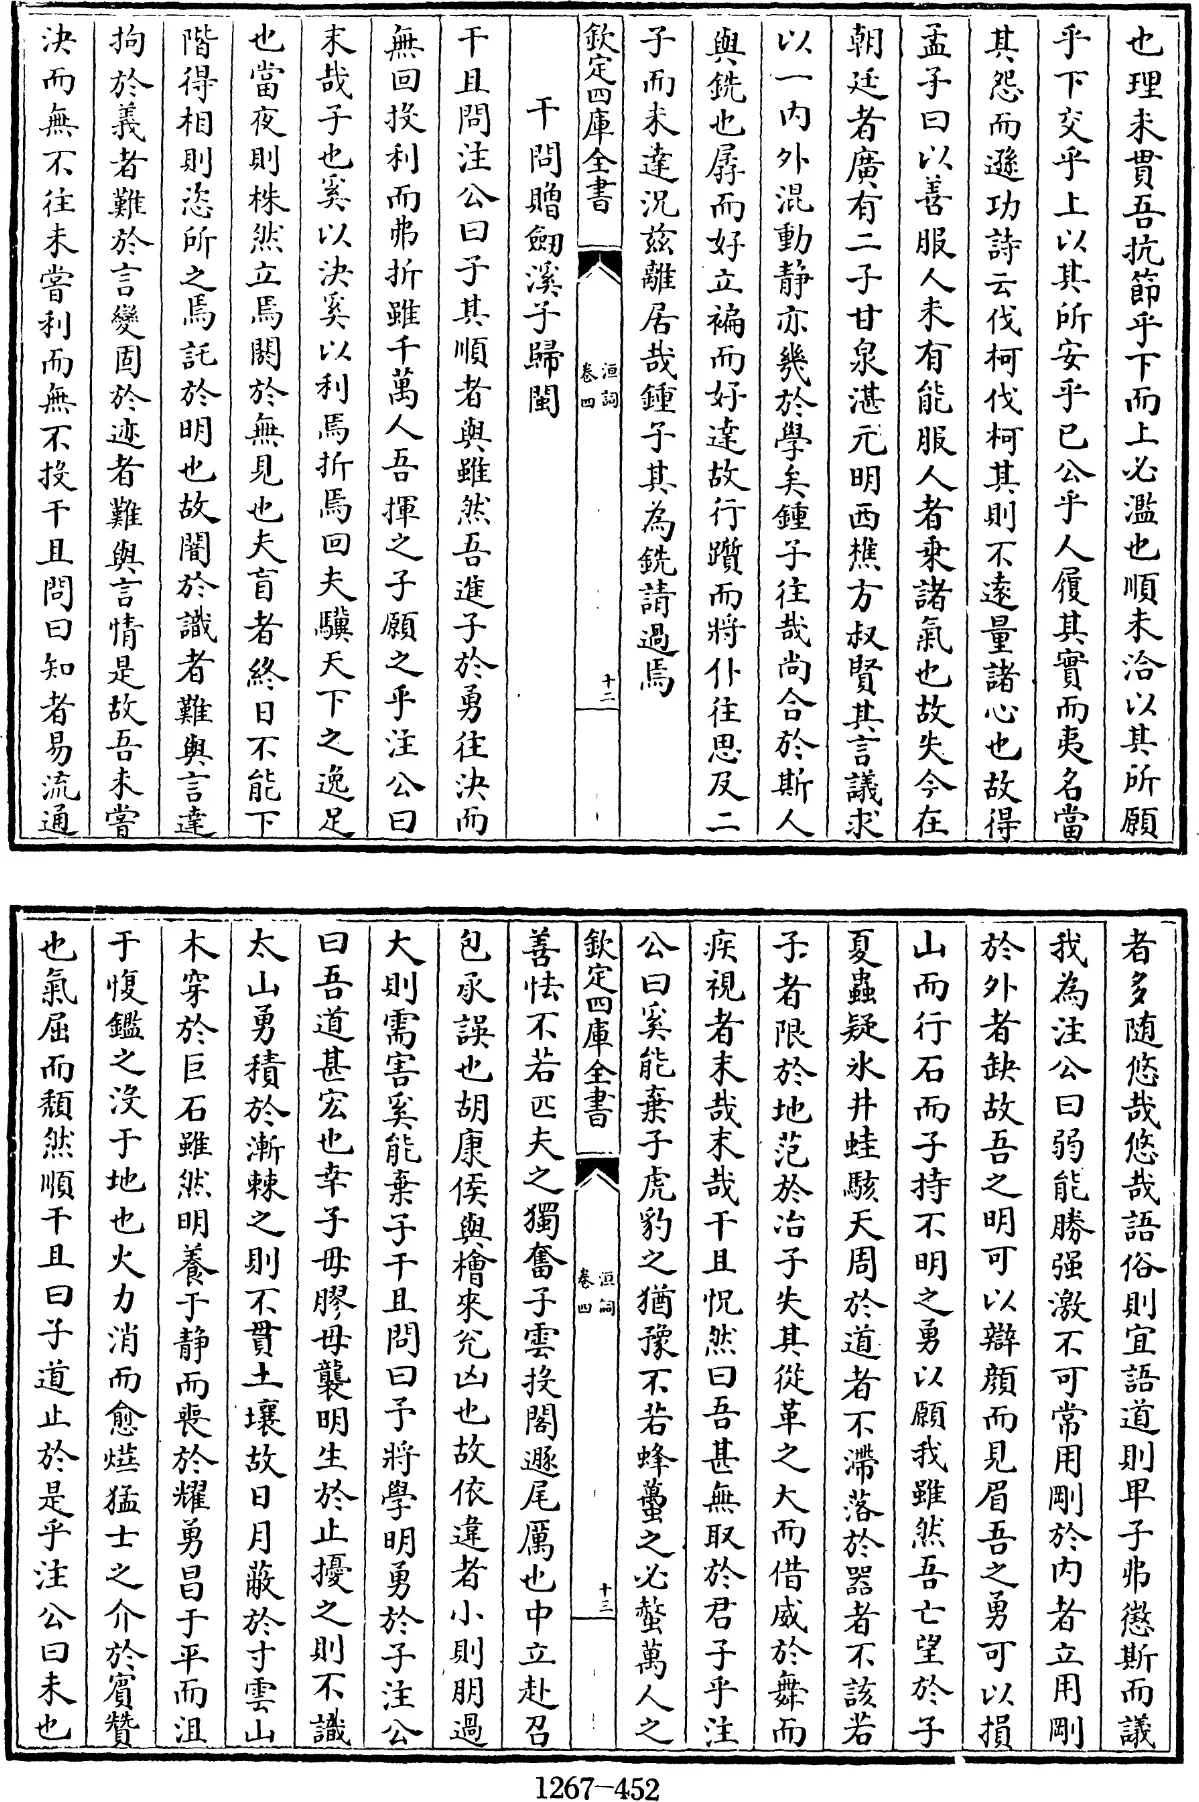 也理未貫吾抗節乎下而上必濫也順未洽以其所願
乎下交乎上以其所安乎已公乎人履其實而夷名當
其怨而遜功詩云伐柯伐柯其則不遠量諸心也故得
孟子曰以善服人未有能服人者乗諸氣也故失今在
朝廷者廣有二子甘泉湛元明西樵方叔賢其言議求
以一内外混動静亦幾於學矣鍾子往哉尚合於斯人
與銑也孱而好立褊而好達故行躓而將仆往思及二
子而未達況兹離居哉鍾子其為銑請過焉
欽定四庫全書
洹詞
卷四
十二
干問贈劒溪子歸閩
干且問注公曰子其順者與雖然吾進子於勇往決而
無回投利而弗折雖千萬人吾揮之子願之乎注公曰
末哉子也奚以決奚以利焉折焉回夫驥天下之逸足
也當夜則株然立焉閡於無見也夫盲者終日不能下
階得相則恣所之焉託於明也故闇於識者難與言達
拘於義者難於言變固於迹者難與言情是故吾未嘗
決而無不往未嘗利而無不投干且問曰知者易流通
者多随悠哉悠哉語俗則宜語道則甲子弗懲斯而議
我為注公曰弱能勝强激不可常用剛於内者立用剛
於外者缺故吾之明可以辯顔而見眉吾之勇可以損
山而行石而子持不明之勇以願我雖然吾亡望於子
夏蟲疑氷井蛙駭天周於道者不滯落於器者不該若
子者限於地范於冶子失其從革之大而借威於舞而
疾視者末哉末哉干且怳然曰吾甚無取於君子乎注
公曰奚能棄子虎豹之猶豫不若蜂蠆之必螫萬人之
欽定四庫全書
洹詞
卷四
十三
善怯不若匹夫之獨奮子雲投閣遯尾厲也中立赴召
包承誤也胡康侯與檜來兊凶也故依違者小則朋過
大則需害奚能棄子干且問曰予將學明勇於子注公
曰吾道甚宏也幸子毋膠毋襲明生於止擾之則不識
太山勇積於漸棘之則不貫土壤故日月蔽於寸雲山
木穿於巨石雖然明養于静而喪於耀勇昌于平而沮
于愎鑑之沒于地也火力消而愈㷳猛士之介於賓贊
也氣屈而頽然順干且曰子道止於是乎注公曰未也
1267-452